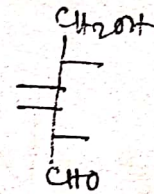 CH2OH
CHO